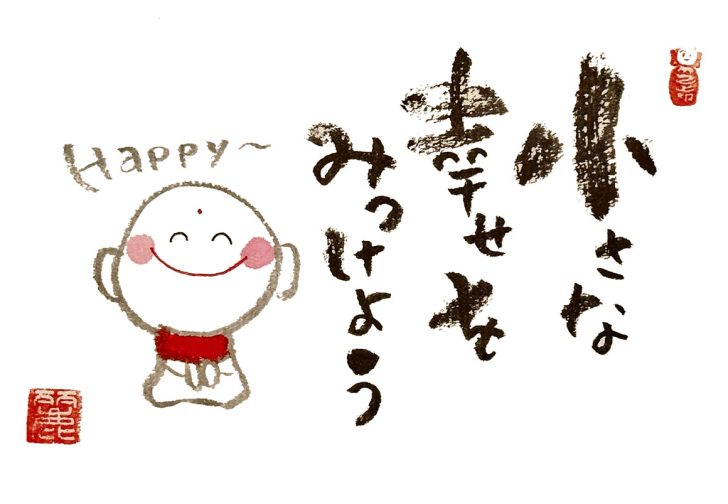 小さな
幸せを
みつけよう
Happy~